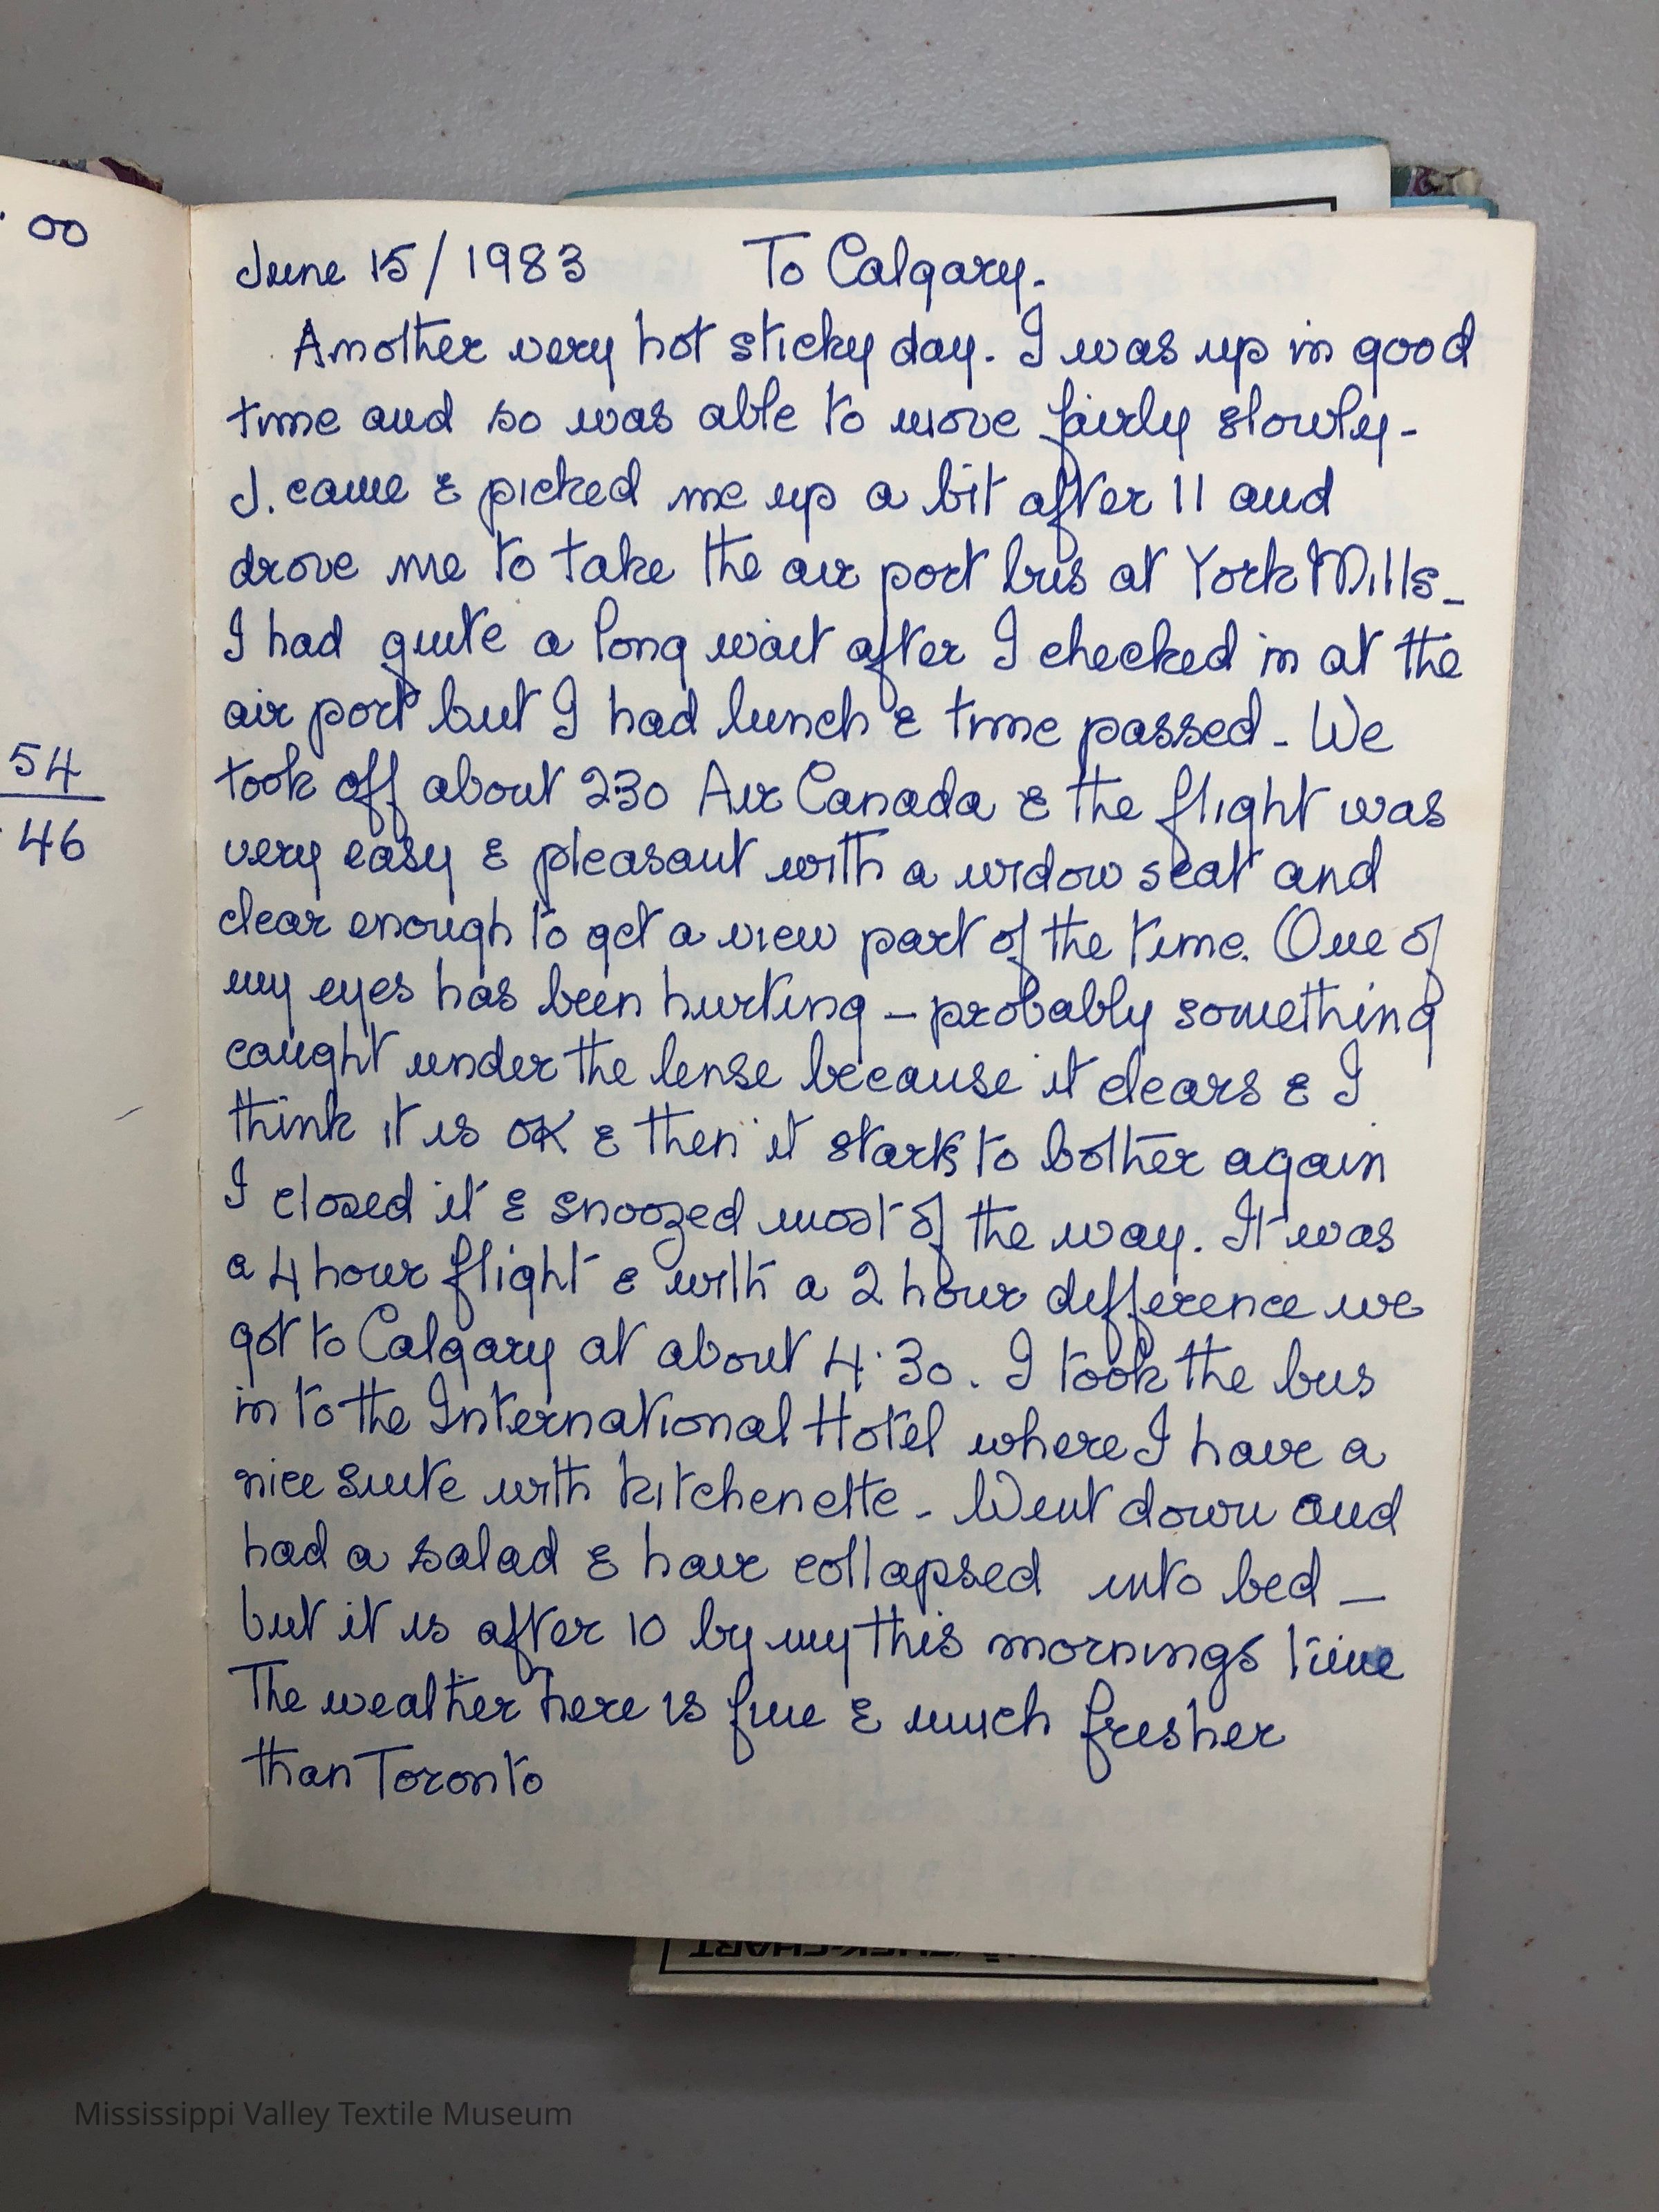 . 00
54
46
June 15/1983 To Calgary.
Another very hot sticky day. I was up in good
time and so was able to move fairly slowly -
J. came & picked me up a bit after 11 and
drove me to take the air port bus at York Mills _
I had quite a long wait after I checked in at the
air port but I had lunch & time passed - We
took off about 230 Air Canada & the flight was
very easy & pleasant with a widow seat and
clear enough to get a view part of the time. One of
my eyes has been hurting - probably something
caught under the lense because it clears & I
think it is OK & then it starts to bother again
I closed it & snoozed most of the way. It was
a 4 hour flight & with a 2 hour difference we
got to Calgary at about 4.30. I took the bus
in to the International Hotel where I have a
nice suite with kitchenette - Went down and
had a salad & have collapsed into bed —
but it is after 10 by my this mornings time
The weather here is fine & much fresher
than Toronto
Mississippi Valley Textile Museum